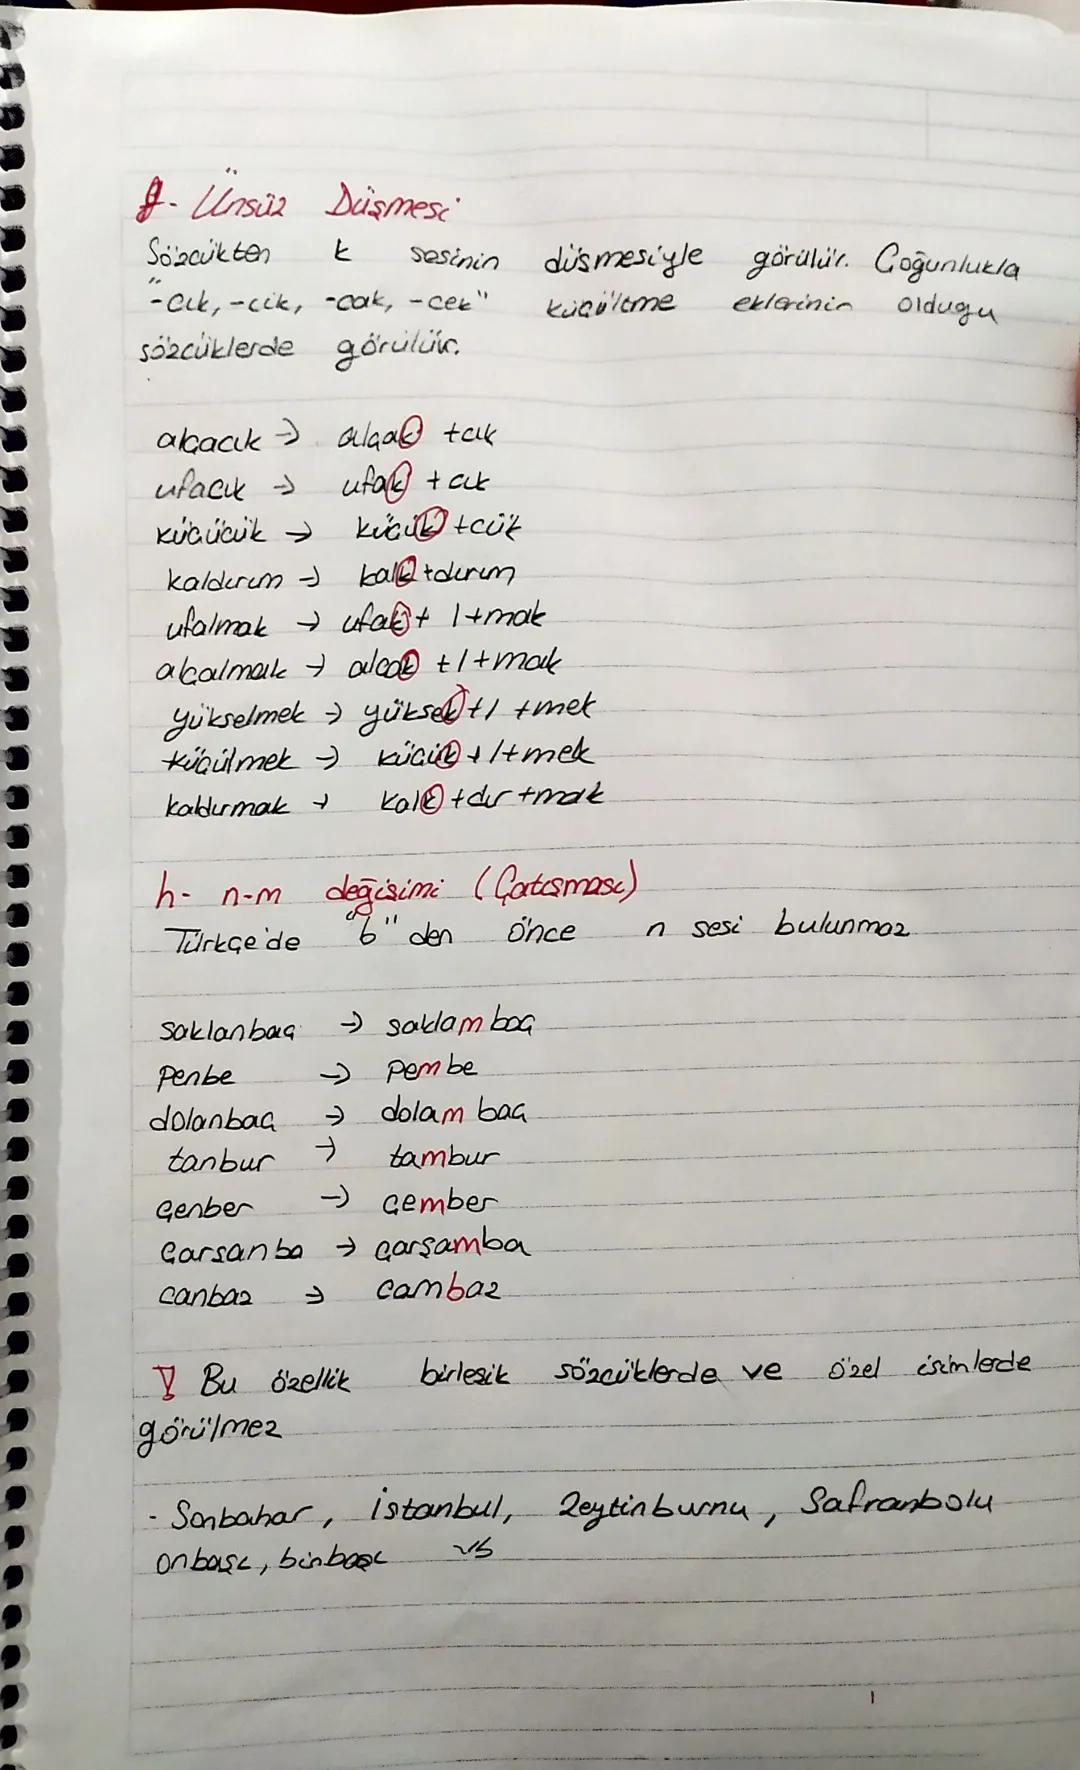 g- Ünsüz Düşmesi
Sözcükten k sesinin düşmesiyle görülür. Çoğunlukla
"-cık, -cik, -cak, -cek" küçültme eklerinin olduğu
sözcüklerde görülür.
alçacık → alçak +cık
ufacık → ufak + cık
küçücük → küçük +cük
kaldırım → kalk +dırım
ufalmak → ufak + l +mak
alçalmak → alçak + l +mak
yükselmek → yüksek + l +mek
küçülmek → küçük + l +mek
kaldırmak → kalk +dır +mak
h- n-m değişimi (Çatışması)
Türkçe'de "b" den önce n sesi bulunmaz
saklanbaç → saklambaç
penbe → pembe
dolanbaç → dolambaç
tanbur → tambur
çenber → çember
Çarşanba → çarşamba
canbaz → cambaz
! Bu özellik birleşik sözcüklerde ve özel isimlerde
görülmez
- Sonbahar, İstanbul, Zeytinburnu, Safranbolu
onbaşı, binbaşı vb